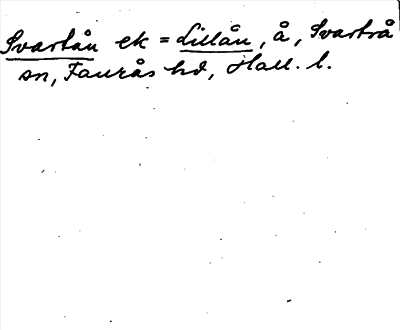 Svartån ek = Lillån, å, Svartrå
sn, Faurås hd, Hall. l.